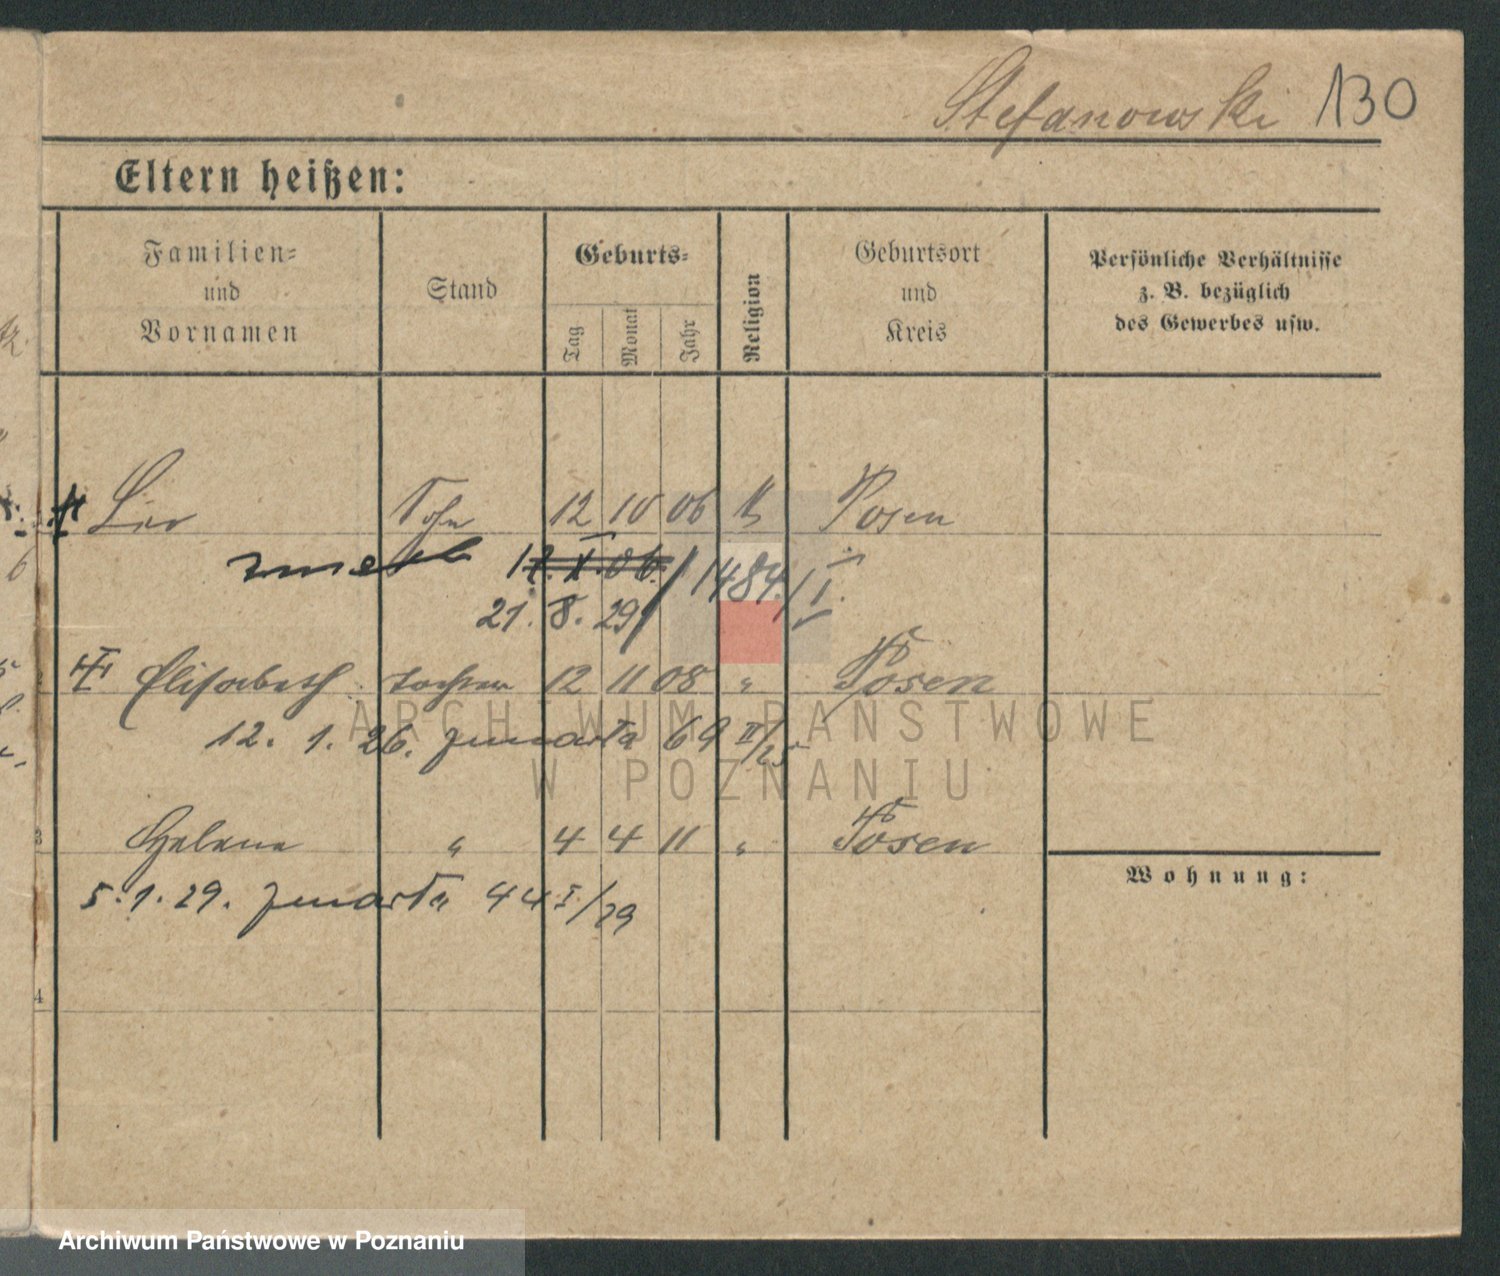 Stefanowski 130
Eltern heißen:
Familien=
und
Vornamen
Stand
Geburts=
Tag
Monat
Jahr
Religion
Geburtsort
und
Kreis
Persönliche Verhältnisse
z. B. bezüglich
des Gewerbes usw.
Leo Sohn 12 10 06 k Posen
zmarł 12. X. 06. / 1484 / I
21. 8. 29
2 Elisabeth Tochter 12 11 08 " Posen
12. 1. 26. zmarła 69 II/25
3 Helene " 4 4 11 " Posen
5. 1. 29. zmarła 44 I/29
4
Wohnung:
ARCHIWUM PAŃSTWOWE
W POZNANIU
Archiwum Państwowe w Poznaniu